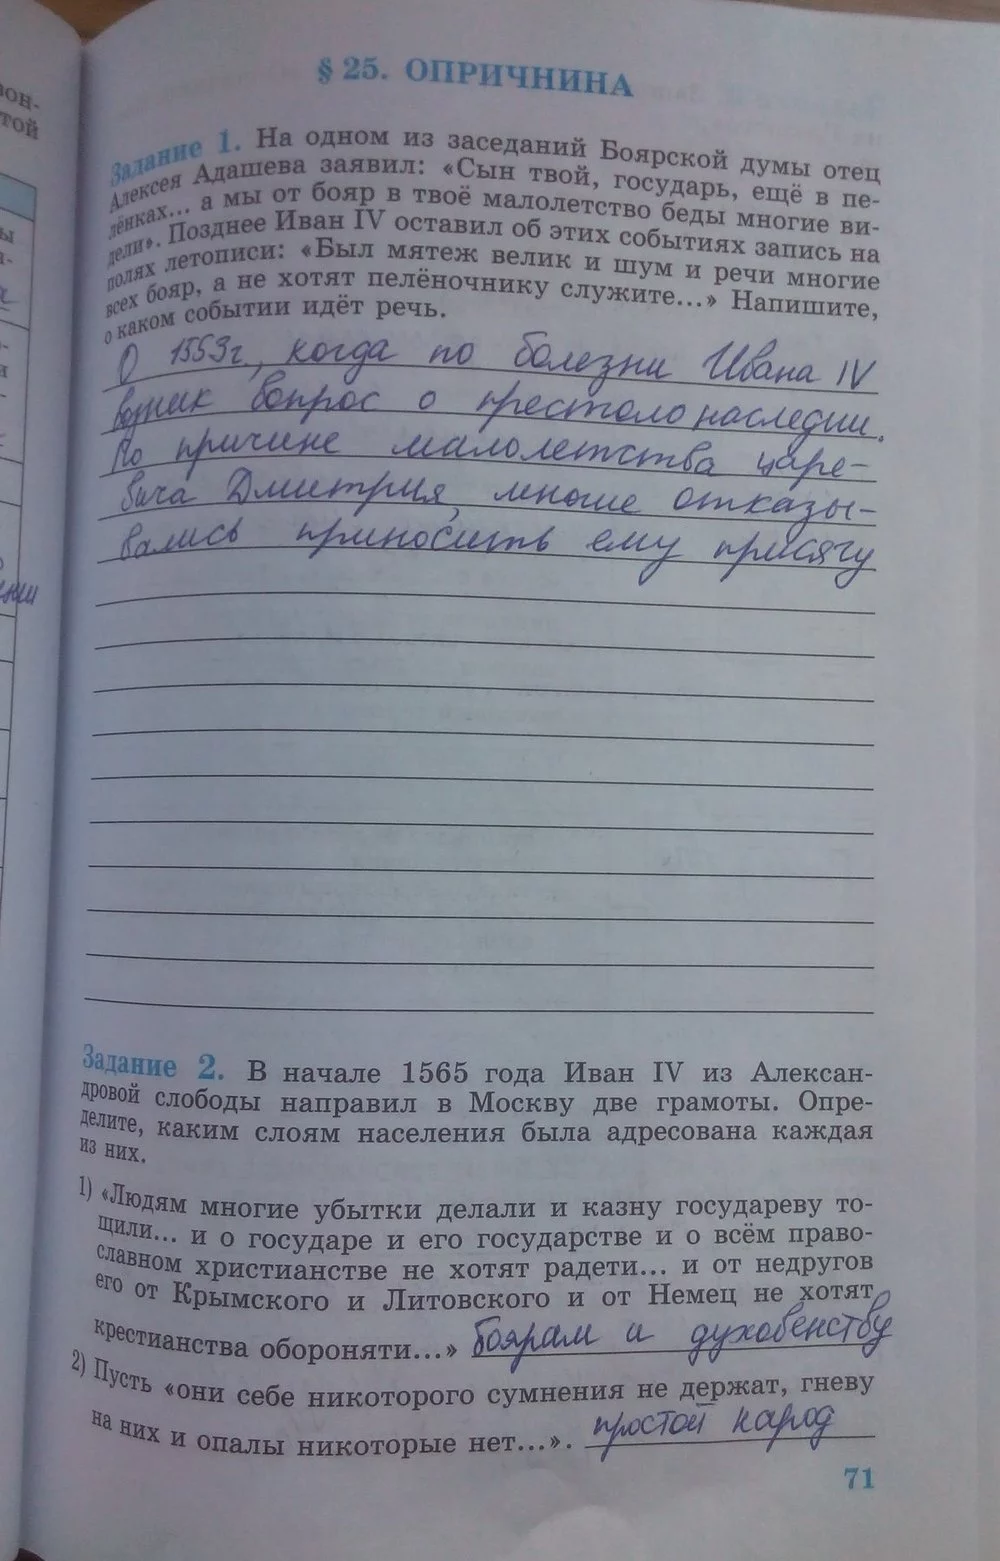 § 25. ОПРИЧНИНА
Задание 1. На одном из заседаний Боярской думы отец
Алексея Адашева заявил: «Сын твой, государь, ещё в пе-
лёнках... а мы от бояр в твоё малолетство беды многие ви-
дели». Позднее Иван IV оставил об этих событиях запись на
полях летописи: «Был мятеж велик и шум и речи многие
всех бояр, а не хотят пелёночнику служите...» Напишите,
о каком событии идёт речь.
О 1553г., когда по болезни Ивана IV
возник вопрос о престолонаследии.
По причине малолетства царе-
вича Дмитрия, многие отказы-
вались приносить ему присягу
Задание 2. В начале 1565 года Иван IV из Алексан-
дровой слободы направил в Москву две грамоты. Опре-
делите, каким слоям населения была адресована каждая
из них.
1) «Людям многие убытки делали и казну государеву то-
щили... и о государе и его государстве и о всём право-
славном христианстве не хотят радети... и от недругов
его от Крымского и Литовского и от Немец не хотят
крестианства обороняти...» боярам и духовенству
2) Пусть «они себе никоторого сумнения не держат, гневу
на них и опалы никоторые нет...». простой народ
71
вон-
той
ы